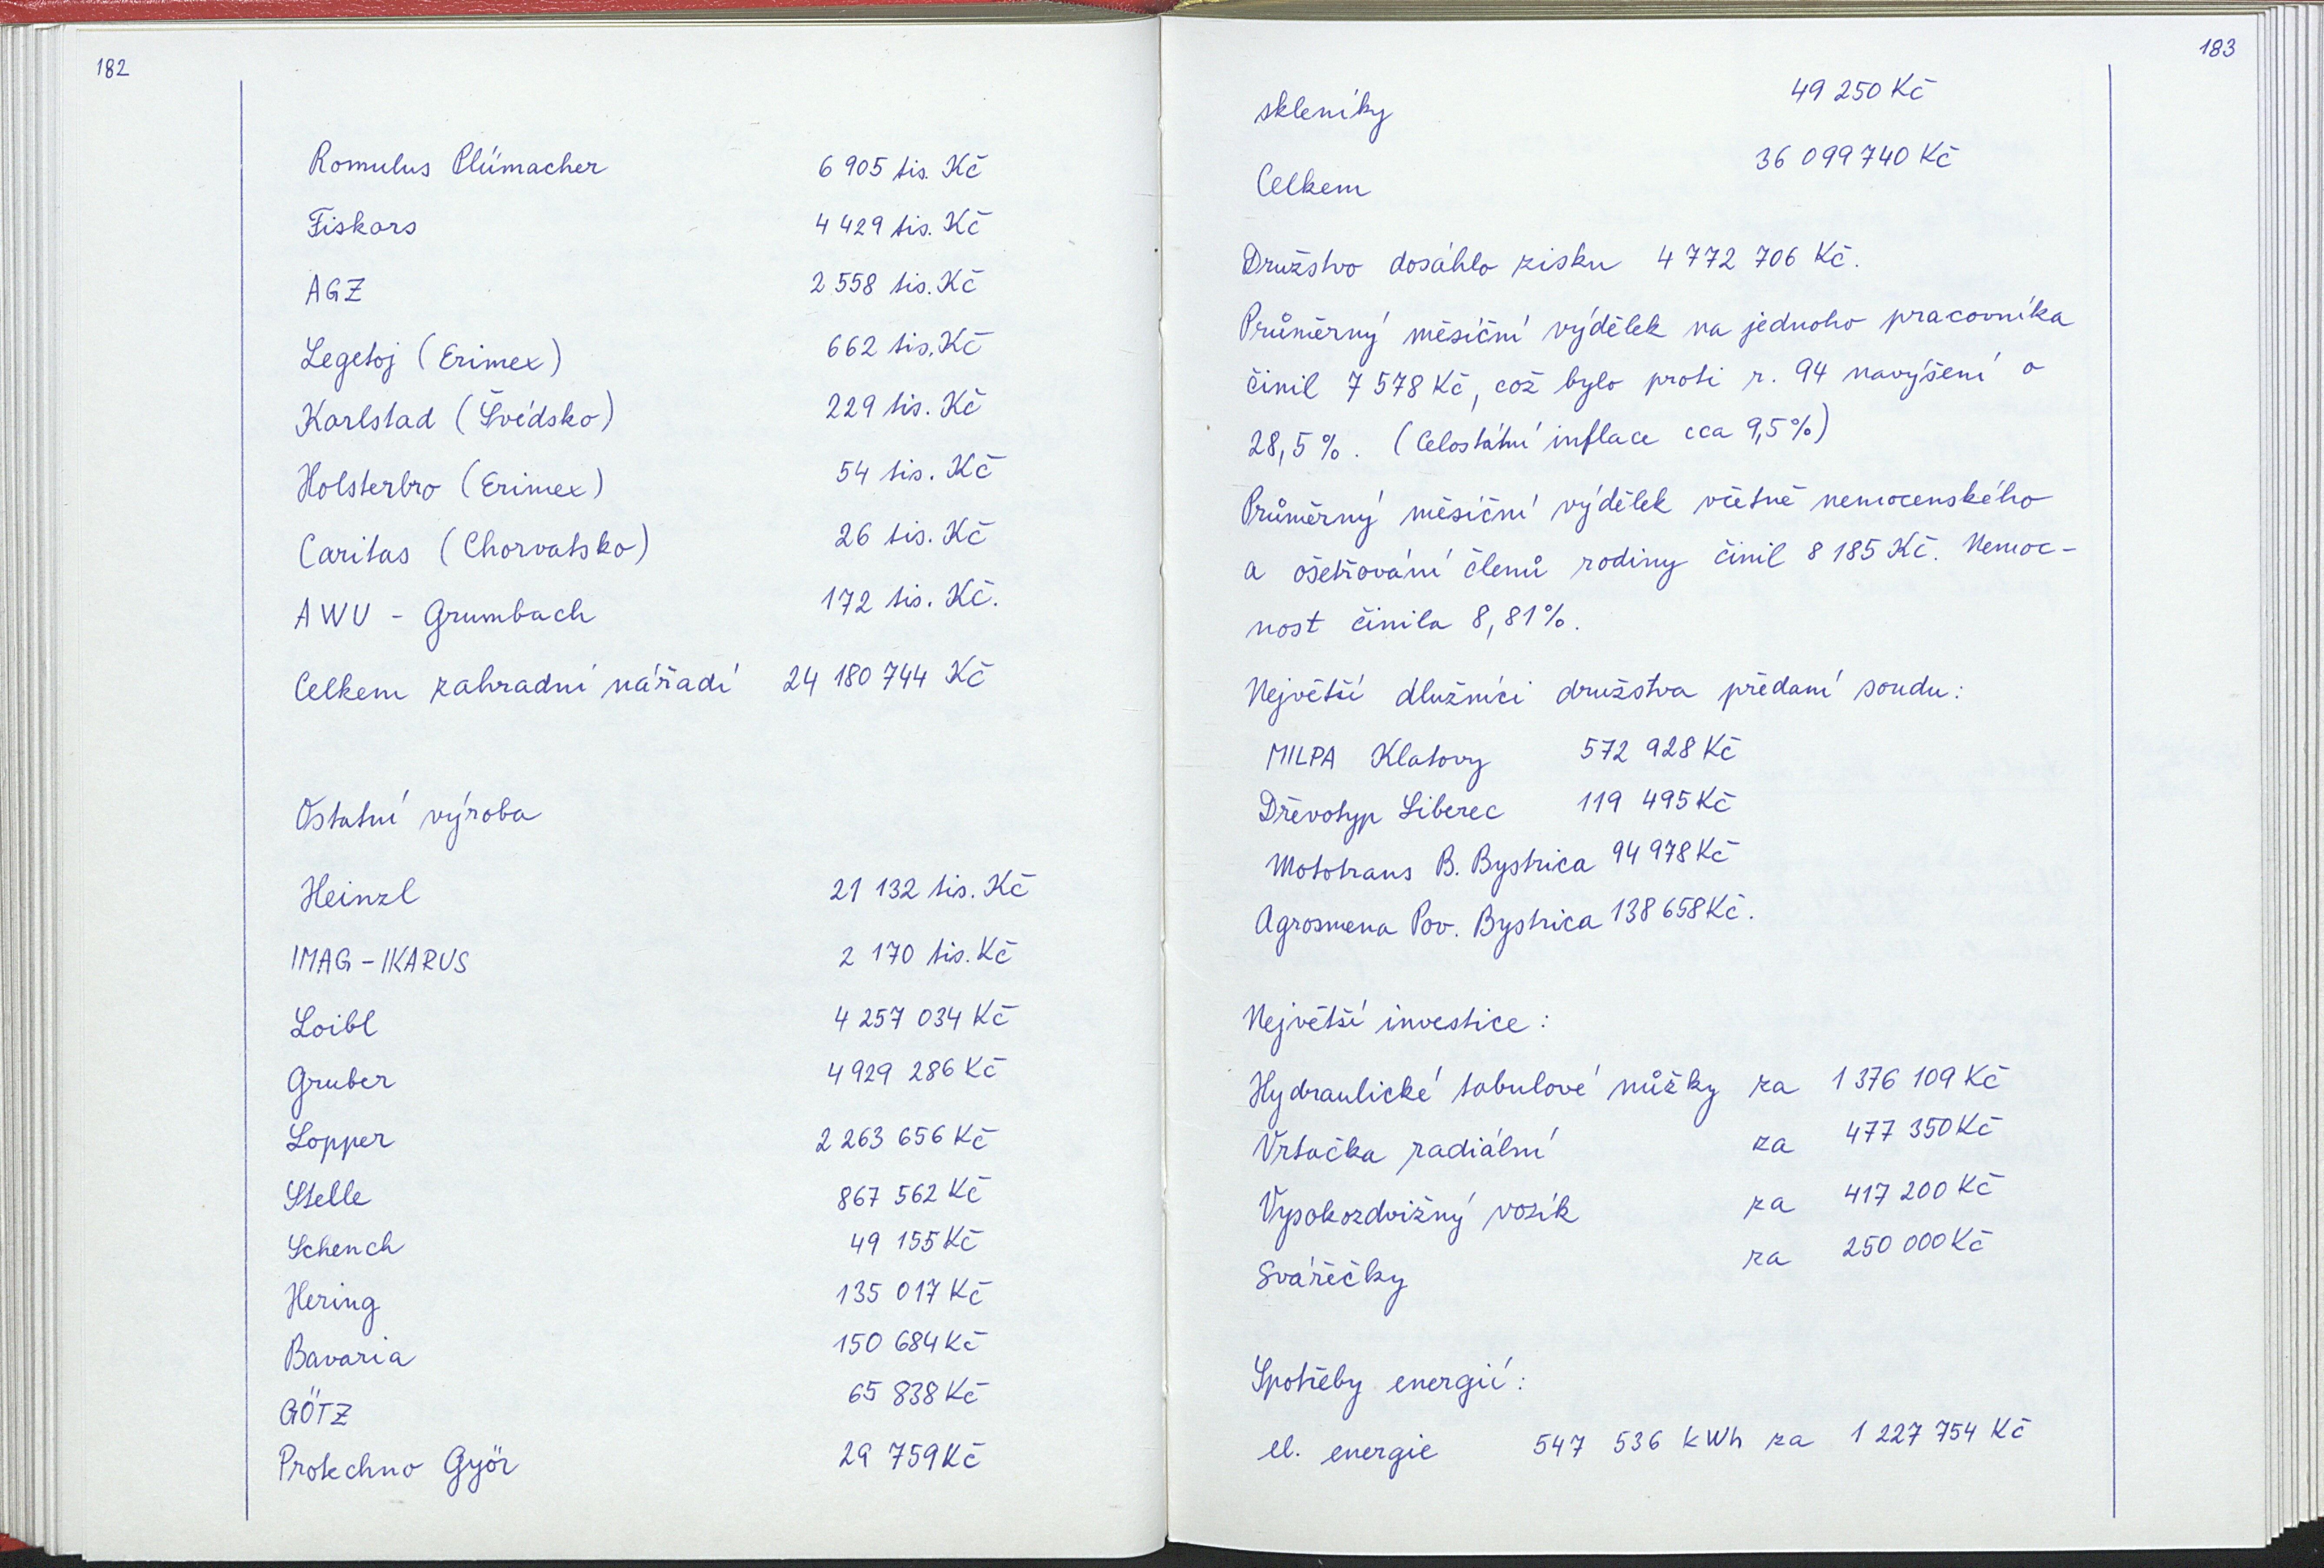 182
Romulus Plümacher 6 905 tis. Kč
Fiskars 4 429 tis. Kč
AGZ 2 558 tis. Kč
Legetoj (Erimex) 662 tis. Kč
Karlstad (Švédsko) 229 tis. Kč
Holsterbro (Erimex) 54 tis. Kč
Caritas (Chorvatsko) 26 tis. Kč
AWU - Grumbach 172 tis. Kč.
Celkem zahradní nářadí 24 180 744 Kč
Ostatní výroba
Heinzl 21 132 tis. Kč
IMAG - IKARUS 2 170 tis. Kč
Loibl 4 257 034 Kč
Gruber 4 929 286 Kč
Lopper 2 263 656 Kč
Stelle 867 562 Kč
Schench 49 155 Kč
Hering 135 017 Kč
Bavaria 150 684 Kč
GÖTZ 65 838 Kč
Protechno Györ 29 759 Kč
183
skleníky 49 250 Kč
Celkem 36 099 740 Kč
Družstvo dosáhlo zisku 4 772 706 Kč.
Průměrný měsíční výdělek na jednoho pracovníka
činil 7 578 Kč, což bylo proti r. 94 navýšení o
28,5 %. (Celostátní inflace cca 9,5 %)
Průměrný měsíční výdělek včetně nemocenského
a ošetřování členů rodiny činil 8 185 Kč. Nemoc-
nost činila 8,81 %.
Největší dlužníci družstva předaní soudu:
MILPA Klatovy 572 928 Kč
Dřevotyp Liberec 119 495 Kč
Mototrans B. Bystrica 94 978 Kč
Agrosmena Pov. Bystrica 138 658 Kč.
Největší investice:
Hydraulické tabulové nůžky za 1 376 109 Kč
Vrtačka radiální za 477 350 Kč
Vysokozdvižný vozík za 417 200 Kč
Svářečky za 250 000 Kč
Spotřeby energií:
el. energie 547 536 kWh za 1 227 754 Kč